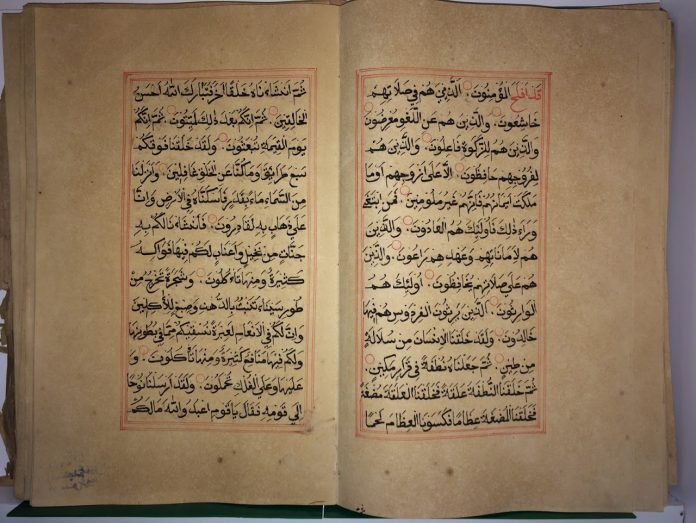 قد افلح المؤمنون الذين هم في صلاتهم
خاشعون والذين هم عن اللغو معرضون
والذين هم للزكوة فاعلون والذين هم
لفروجهم حافظون الا على ازوجهم او ما
ملكت ايمانهم فانهم غير ملومين فمن ابتغى
وراء ذلك فاولئك هم العادون والذين
هم لاماناتهم وعهدهم راعون والذين
هم على صلاتهم يحافظون اولئك هم
الوارثون الذين يرثون الفردوس هم فيها
خالدون ولقد خلقنا الانسان من سلالة
من طين ثم جعلناه نطفة في قرار مكين
ثم خلقنا النطفة علقة فخلقنا العلقة مضغة
فخلقنا المضغة عظاما فكسونا العظام لحما
ثم انشاناه خلقا اخر فتبارك الله احسن
الخالقين ثم انكم بعد ذلك لميتون ثم انكم
يوم القيمة تبعثون ولقد خلقنا فوقكم
سبع طرايق وما كنا عن الخلق غافلين وانزلنا
من السماء ماء بقدر فاسكناه في الارض وانا
على ذهاب به لقادرون فانشانا لكم به
جنات من نخيل واعناب لكم فيها فواكه
كثيرة ومنها تاكلون وشجرة تخرج من
طور سيناء تنبت بالدهن وصبغ للاكلين
وان لكم في الانعام لعبرة نسقيكم مما في بطونها
ولكم فيها منافع كثيرة ومنها تاكلون و
عليها وعلى الفلك تحملون ولقد ارسلنا نوحا
الى قومه فقال يا قوم اعبدوا الله مالكم